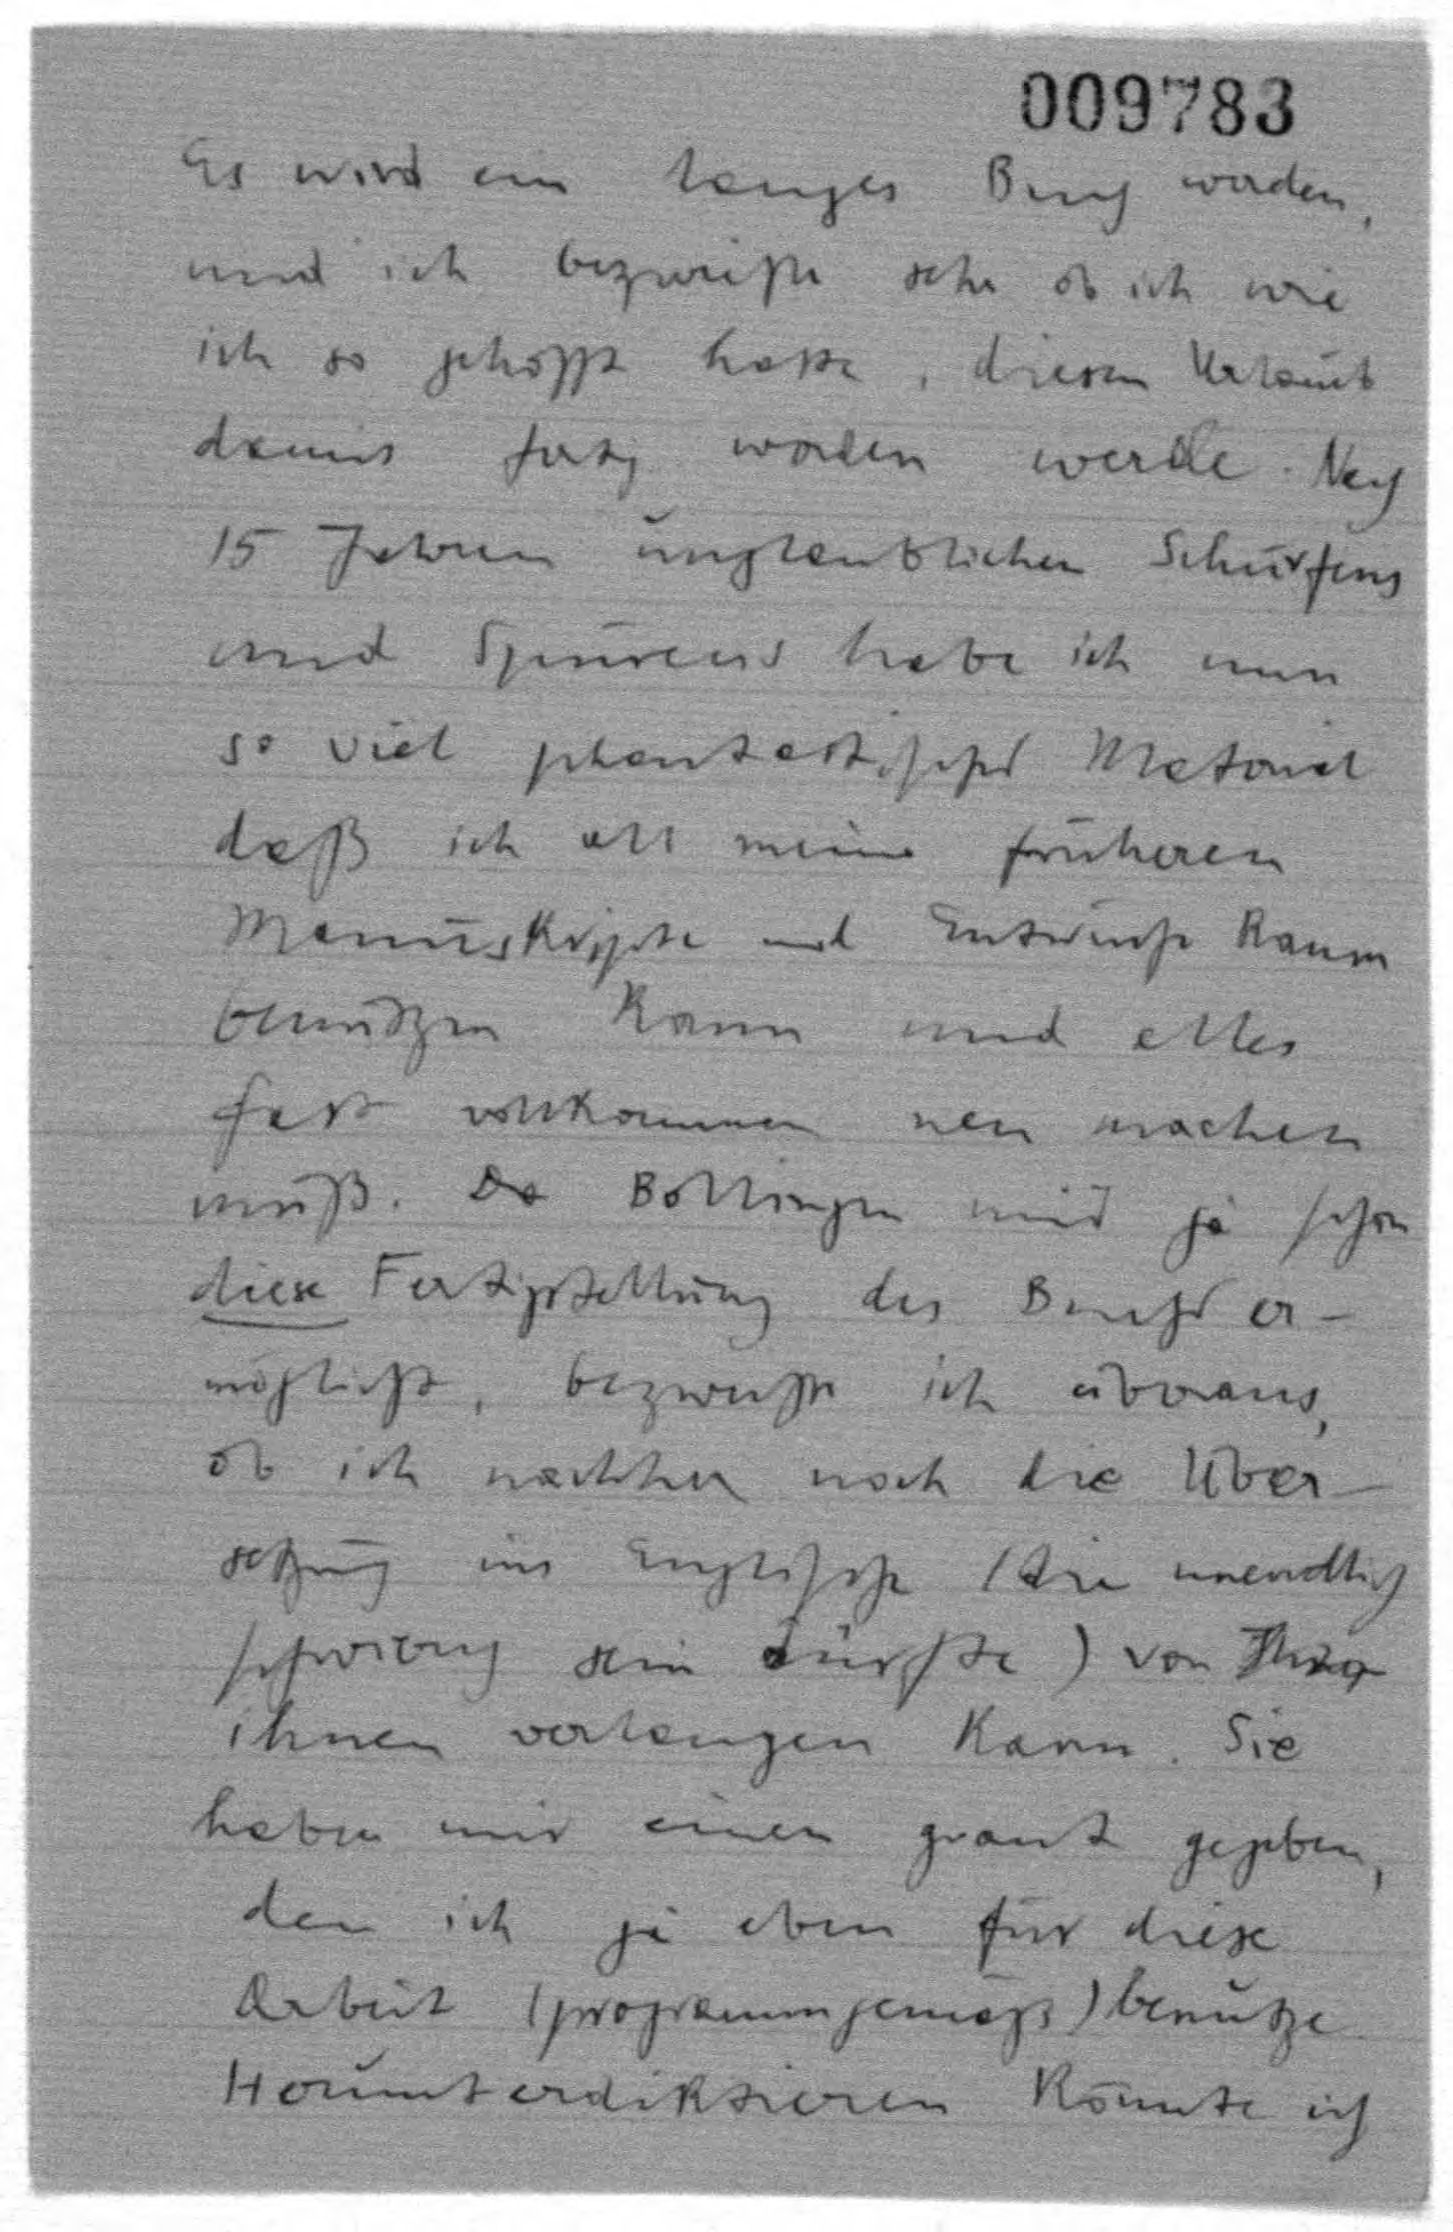 009783
Es wird ein langes Buch werden,
und ich bezweifle sehr ob ich wie
ich so gehofft hatte, diesen Urlaub
damit fertig worden werde. Nach
15 Jahren unglaublichen Schürfens
und Spürens habe ich nun
so viel phantastisches Material
daß ich all meine früheren
Manuskripte und Entwürfe kaum
benützen kann und alles
fast vollkommen neu machen
muß. Da Bollingen mir ja schon
diese Fertigstellung des Buches er-
möglicht, bezweifle ich überaus,
ob ich nachher noch die Über-
setzung ins Englische (die unendlich
schwierig sein dürfte) von
ihnen verlangen kann. Sie
haben mir einen grant gegeben,
den ich ja eben für diese
Arbeit (programmgemäß) benütze
Herunterdiktieren könnte ich